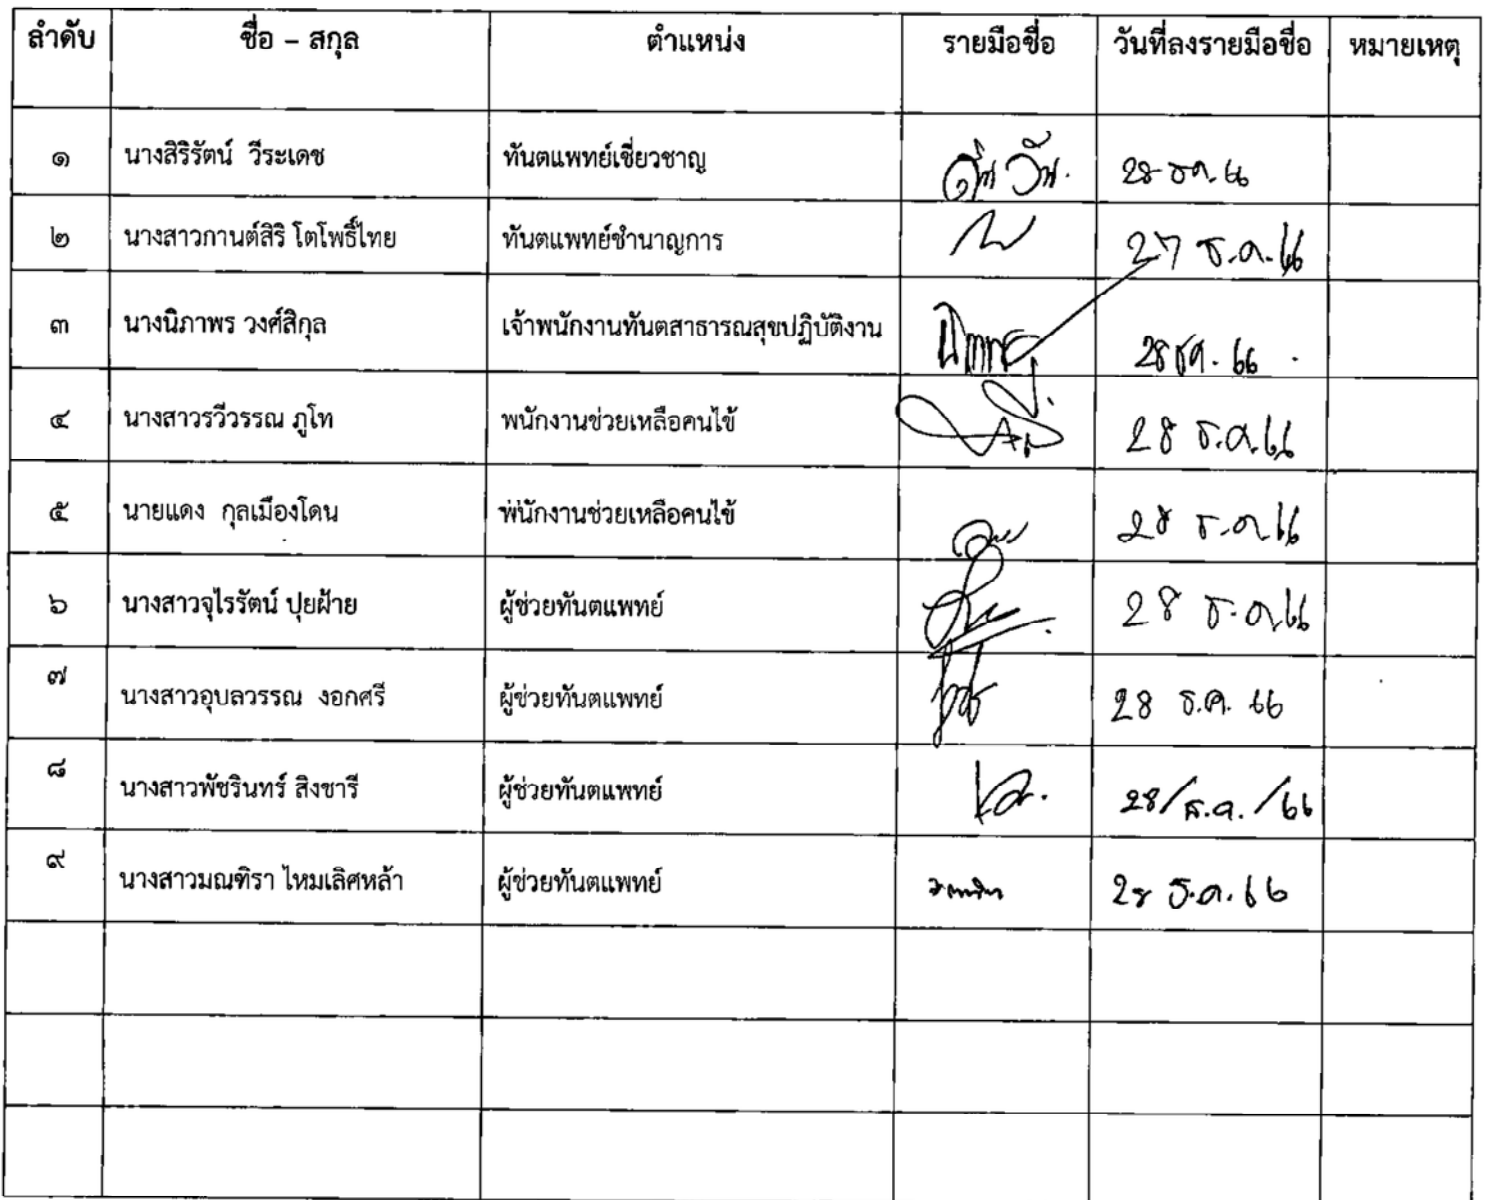 ลำดับ ชื่อ – สกุล ตำแหน่ง รายมือชื่อ วันที่ลงรายมือชื่อ หมายเหตุ
๑ นางสิริรัตน์ วีระเดช ทันตแพทย์เชี่ยวชาญ 28 ธค. 66
๒ นางสาวกานต์สิริ โตโพธิ์ไทย ทันตแพทย์ชำนาญการ 27 ธ.ค. 66
๓ นางนิภาพร วงศ์สิกุล เจ้าพนักงานทันตสาธารณสุขปฏิบัติงาน 28 ธค. 66
๔ นางสาวรวีวรรณ ภูโท พนักงานช่วยเหลือคนไข้ 28 ธ.ค. 66
๕ นายแดง กุลเมืองโดน พนักงานช่วยเหลือคนไข้ 28 ธ.ค. 66
๖ นางสาวจุไรรัตน์ ปุยฝ้าย ผู้ช่วยทันตแพทย์ 28 ธ.ค. 66
๗ นางสาวอุบลวรรณ งอกศรี ผู้ช่วยทันตแพทย์ 28 ธ.ค. 66
๘ นางสาวพัชรินทร์ สิงชารี ผู้ช่วยทันตแพทย์ 28/ธ.ค./66
๙ นางสาวมณฑิรา ไหมเลิศหล้า ผู้ช่วยทันตแพทย์ 28 ธ.ค. 66